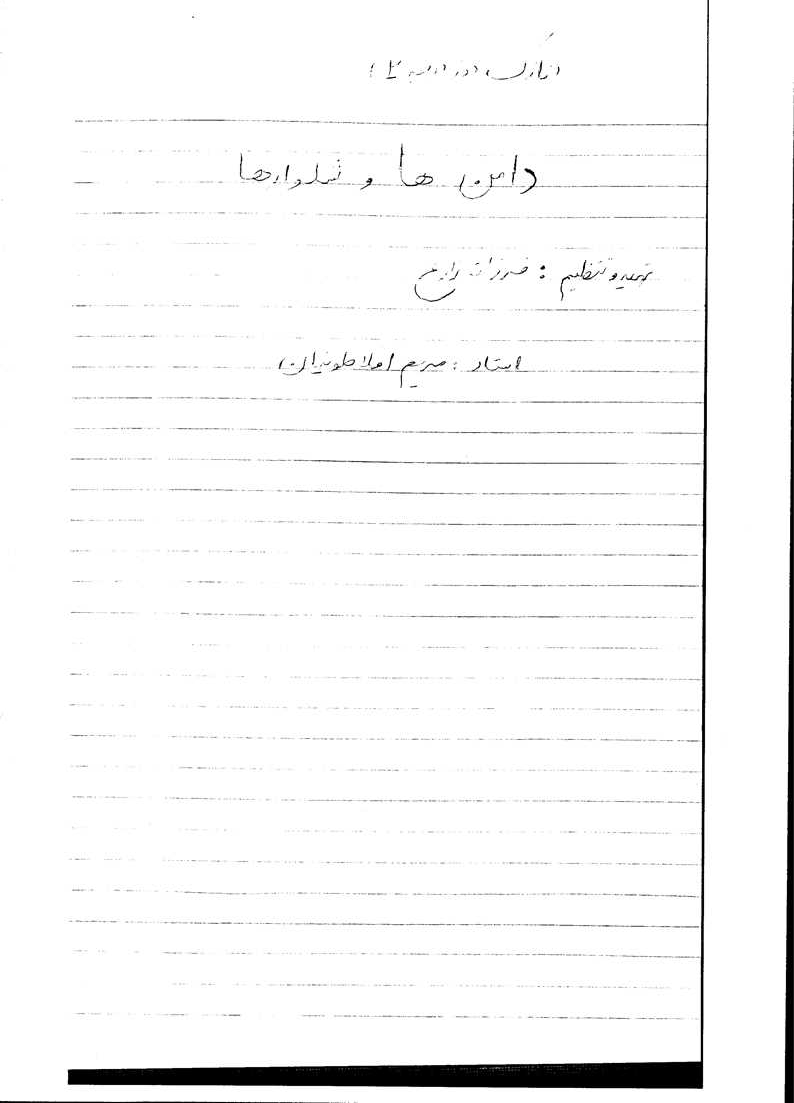 نازک دوز
دامن ها و شلوارها
تهیه و تنظیم : فرزانه
استاد : مریم افلاطونیان